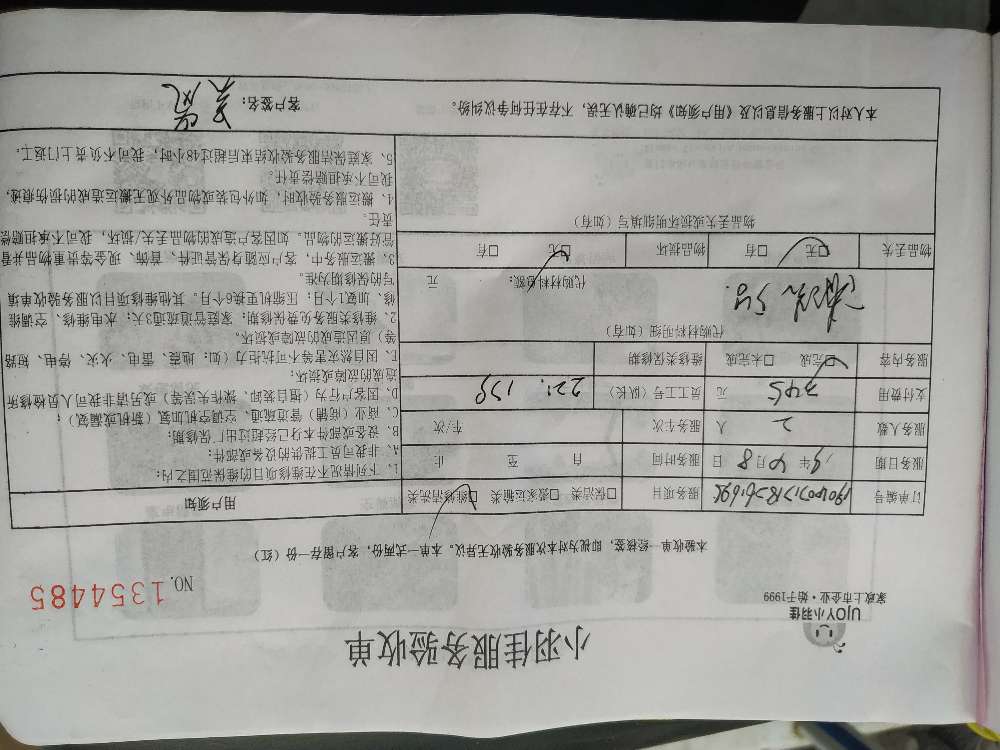 小羽佳服务验收单
UJOY小羽佳
家政上市企业·始于1999
NO. 1354485
本验收单一经核签，即视为对本次服务验收无异议。本单一式两份，客户存留一份（红）
订单编号
服务项目 □保洁类 □搬运家输类 □维修清洗类
服务日期 19年 4月8日 服务时间 自 至 止
服务人数 2人 服务车次 车/次
支付费用 345 元 员工工号（队长） 221. 139
服务内容 □完成 □未完成 维修类保修期
代购材料明细（如有）
代购材料总额： 元
物品丢失 □无 □有 物品损坏 □无 □有
物品丢失或损坏明细填写（如有）
用户须知
1、下列情况不在维修项目的维保范围之内：
A、非我司员工提供的设备或部件；
B、设备或部件本身已经超过出厂保修期；
C、商业（商铺）管道疏通、空调空机加氟（新机或漏氟）；
D、因客户行为（擅自装卸、操作失误等）或另请非我司人员检修所
造成的故障或损坏；
E、因自然灾害等不可抗力（如：地震、雷电、火灾、停电、短路
等）原因造成的故障或损坏。
2、维修类服务免费保修期：家庭管道疏通3天；水电维修、空调维
修、加氟1个月；压缩机更换6个月。其他维修项目以服务验收单填
写的保修期为准。
3、搬运服务中，客户应随身保管证件、首饰、现金等贵重物品并看
管好搬运的物品。如因客户造成的物品丢失/损坏，我司不承担赔偿
责任。
4、搬运服务验收时，如外包装或物品外观无搬运造成的损伤痕迹，
我司不承担赔偿责任。
5、家庭保洁服务验收结束后超过48小时，我司不负责上门返工。
本人对以上服务信息以及《用户须知》均已确认无误，不存在任何争议纠纷。
客户签名：